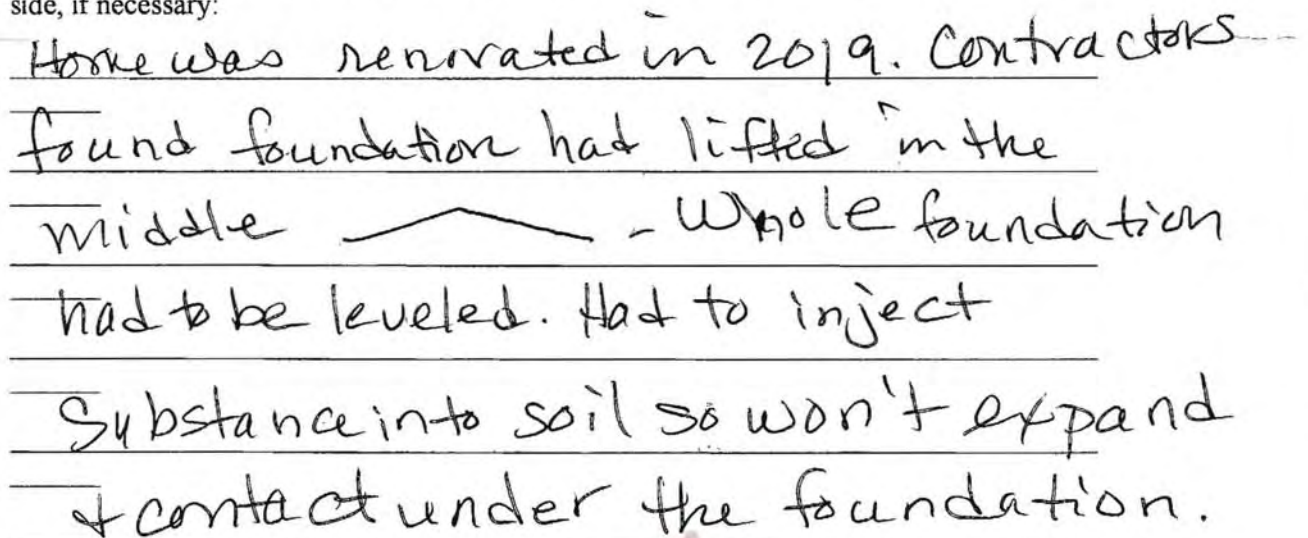 side, if necessary:
Home was renovated in 2019. Contractors
found foundation had lifted in the
middle - Whole foundation
had to be leveled. Had to inject
Substance into soil so won't expand
+ contact under the foundation.